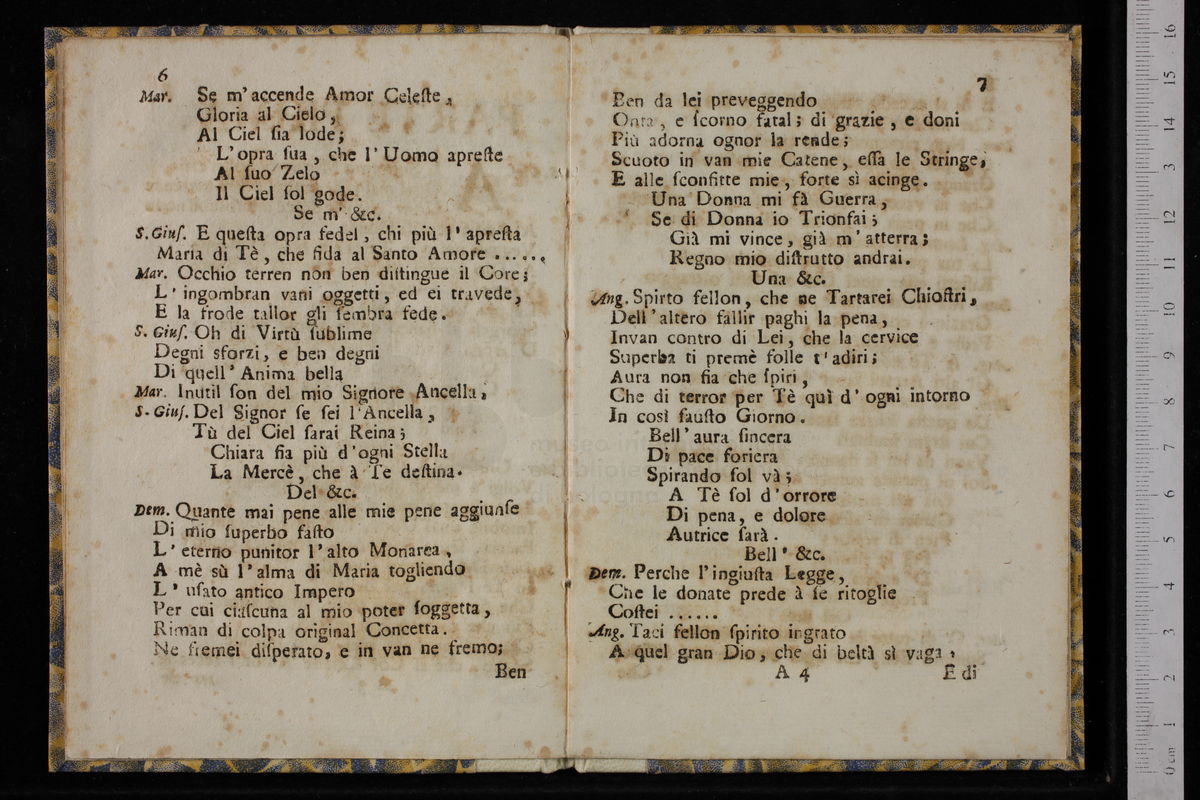 6
Mar. Se m'accende Amor Celeſte,
Gloria al Cielo,
Al Ciel ſia lode;
L'opra ſua, che l'Uomo apreſte
Al ſuo Zelo
Il Ciel ſol gode.
Se m' &c.
S. Giuſ. E queſta opra fedel, chi più l'apreſta
Maria di Tè, che fida al Santo Amore ......
Mar. Occhio terren non ben diſtingue il Core;
L'ingombran vani oggetti, ed ei travede,
E la frode tallor gli ſembra fede.
S. Giuſ. Oh di Virtù ſublime
Degni sforzi, e ben degni
Di quell' Anima bella
Mar. Inutil ſon del mio Signore Ancella;
S. Giuſ. Del Signor ſe ſei l'Ancella,
Tù del Ciel ſarai Reina;
Chiara ſia più d'ogni Stella
La Mercè, che à Te deſtina.
Del &c.
Dem. Quante mai pene alle mie pene aggiunſe
Di mio ſuperbo faſto
L'eterno punitor l'alto Monarca,
A mè sù l'alma di Maria togliendo
L'uſato antico Impero
Per cui ciaſcuna al mio poter ſoggetta,
Riman di colpa original Concetta.
Ne fremei diſperato, e in van ne fremo;
Ben
7
Ben da lei preveggendo
Onta, e ſcorno fatal; di grazie, e doni
Più adorna ognor la rende;
Scuoto in van mie Catene, eſſa le Stringe,
E alle ſconfitte mie, forte sì acinge.
Una Donna mi fà Guerra,
Se di Donna io Trionfai;
Già mi vince, già m'atterra;
Regno mio diſtrutto andrai.
Una &c.
Ang. Spirto fellon, che ne Tartarei Chioſtri,
Dell'altero fallir paghi la pena,
Invan contro di Lei, che la cervice
Superba ti premè folle t'adiri;
Aura non fia che ſpiri,
Che di terror per Tè quì d'ogni intorno
In così fauſto Giorno.
Bell'aura ſincera
Di pace foriera
Spirando ſol và;
A Tè ſol d'orrore
Di pena, e dolore
Autrice ſarà.
Bell' &c.
Dem. Perche l'ingiuſta Legge,
Che le donate prede à ſe ritoglie
Coſtei ......
Ang. Taci fellon ſpirito ingrato
A quel gran Dio, che di beltà sì vaga,
A 4
E di